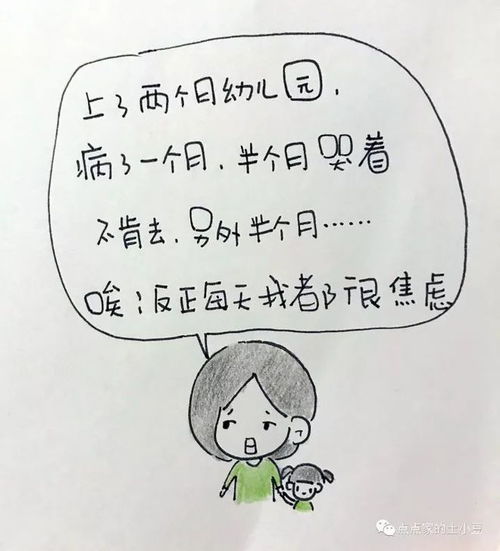 上了两个月幼儿园，
病了一个月，半个月哭着
不肯去，另外半个月……
唉！反正每天我都很焦虑
点点家的土小豆